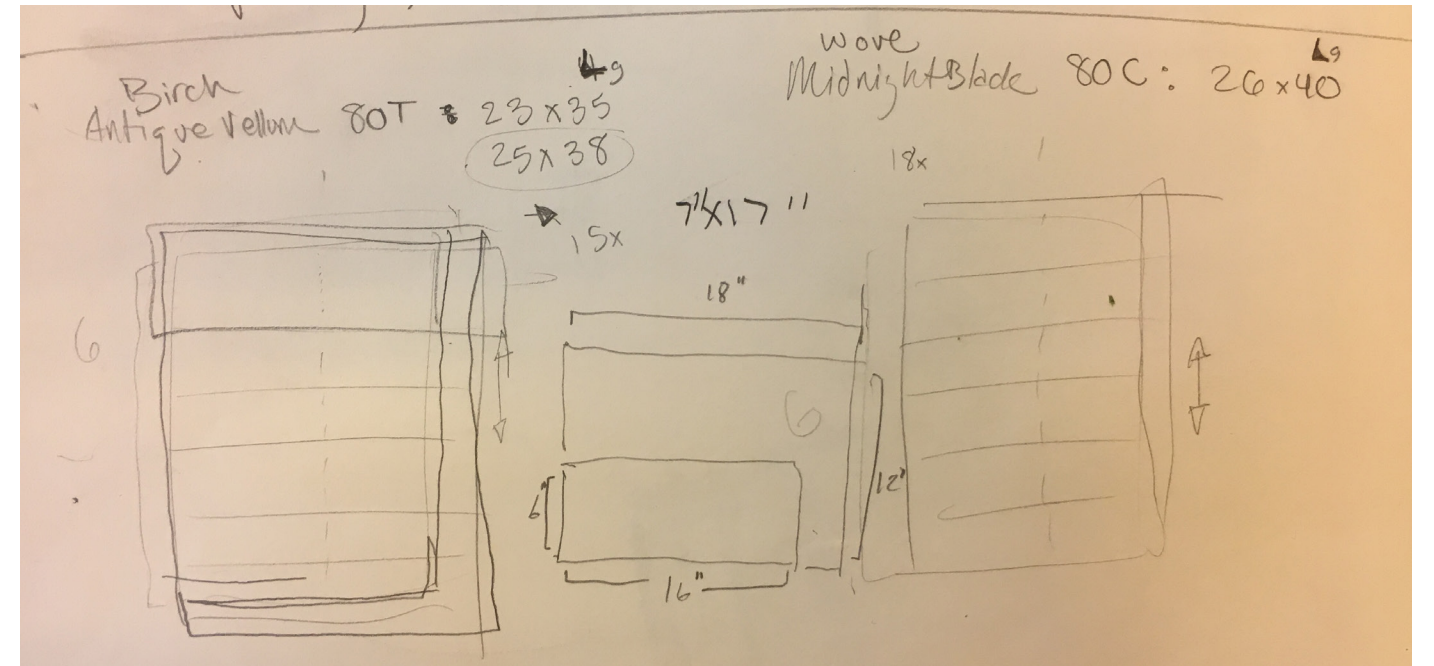 Birch
Antique Vellum 80T : 23 x 35
25 x 38
wove
Midnight Black 80C : 26 x 40
18x
7"x17"
15x
18"
6
6
12"
6"
16"